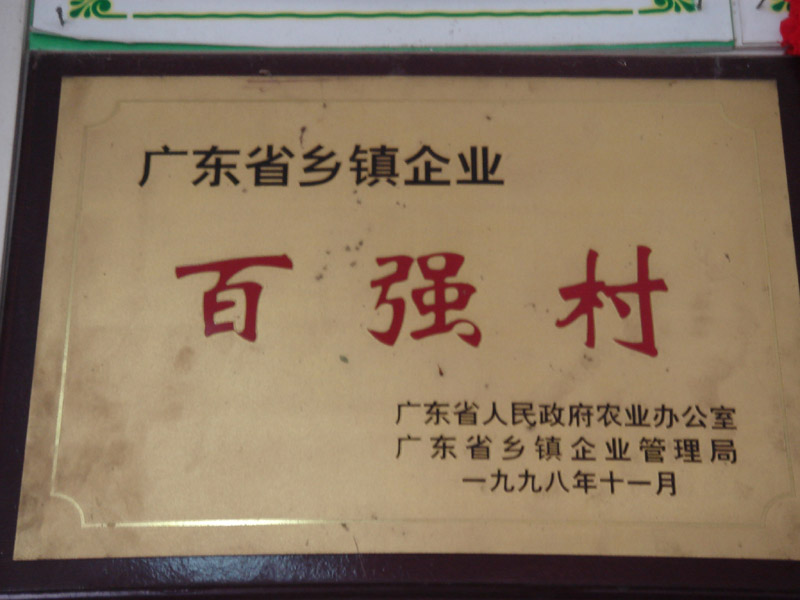 广东省乡镇企业
百强村
广东省人民政府农业办公室
广东省乡镇企业管理局
一九九八年十一月